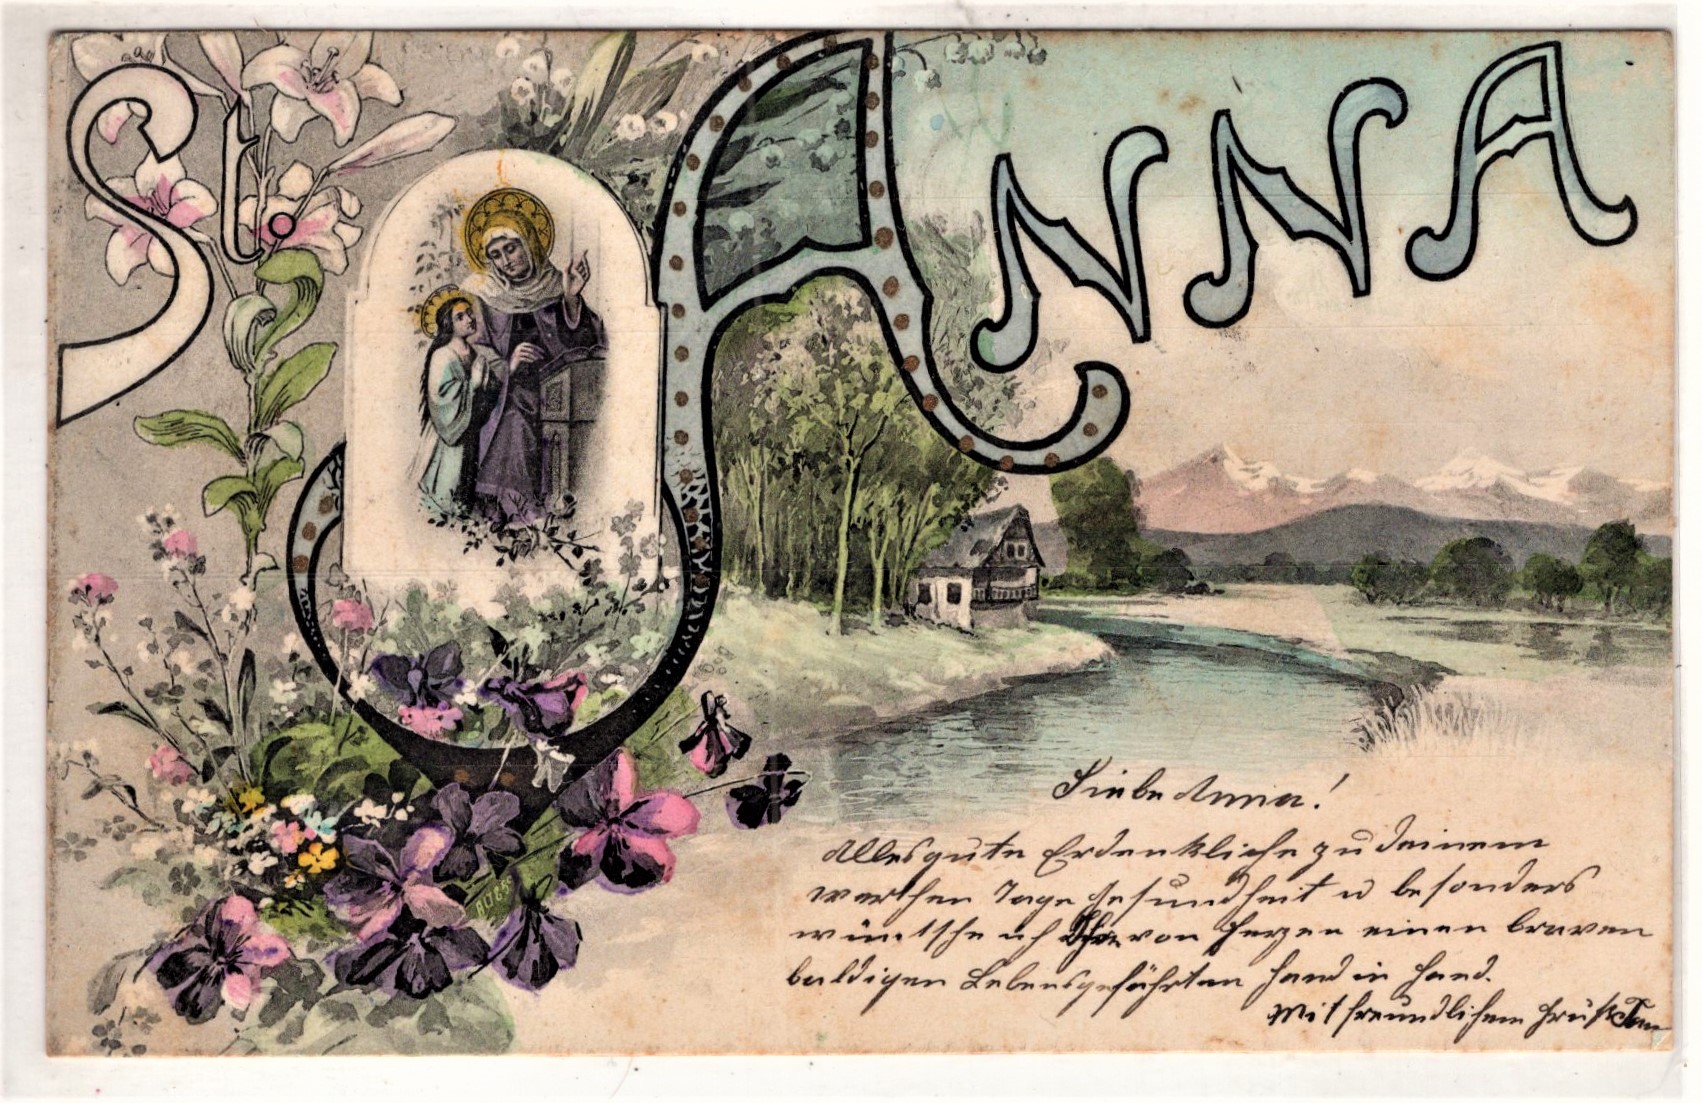 St. ANNA
Liebe Anna!
Alles gute Erdenkliche zu Deinem
werthen Tage Gesundheit u besonders
wünsche ich Dir von Herzen einen braven
baldigen Lebensgefährten Hand in Hand.
Mit freundlichem Gruß